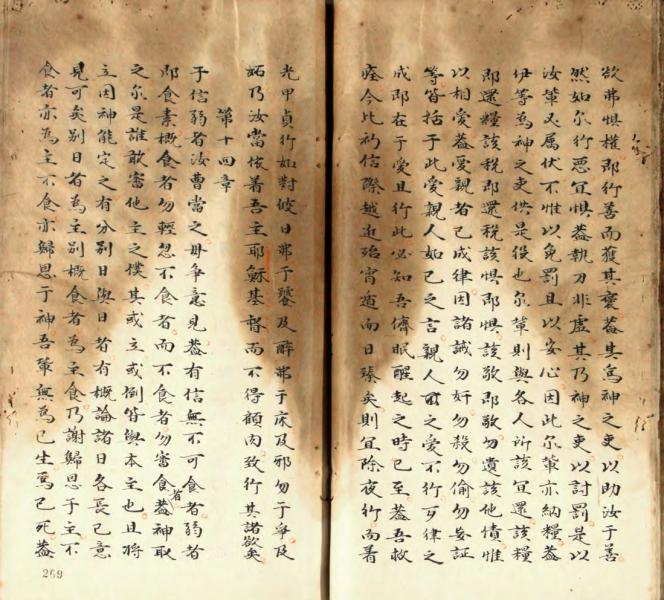 欲弗懼權即行善而獲其襃葢其爲神之吏以助汝于善
然如尔行惡宜懼葢執刀非虛其乃神之吏以討罰是以
汝軰又属伏不惟以免罰且以安心因此尔軰亦納糧葢
伊等爲神之吏供是役也尔軰則與各人所該宜還該糧
即還糧該税即還税該懼即懼該敬即敬勿遺該他債惟
以相愛葢愛親者已成律因諸誡勿奸勿殺勿偷勿妄証
等皆括于此愛親人如己之言親人之愛不行歹律之
成即在于愛且行此必知吾儕眠醒起之時已至葢吾救
痊今比初信際越近殆宵適而日臻矣則宜除夜行而著
光甲貞行如對皎日弗于饕及醉弗于床及邪勿于爭及
妬乃汝當依著吾主耶穌基督而不得顧肉致行其諸欲矣
第十四章
于信弱者汝曹當之毋争意見葢有信無不可食者弱者
即食素概食者勿輕忽不食者而不食者勿審食者葢神取
之尔是誰敢審他主之僕其或立或倒皆與本主也且將
立因神能定之有分别日與日者有概論諸日各長己意
見可矣别日者爲主别概食者爲主食乃謝歸恩于主不
食者亦爲主不食亦歸恩于神吾軰無爲己生焉己死葢
269